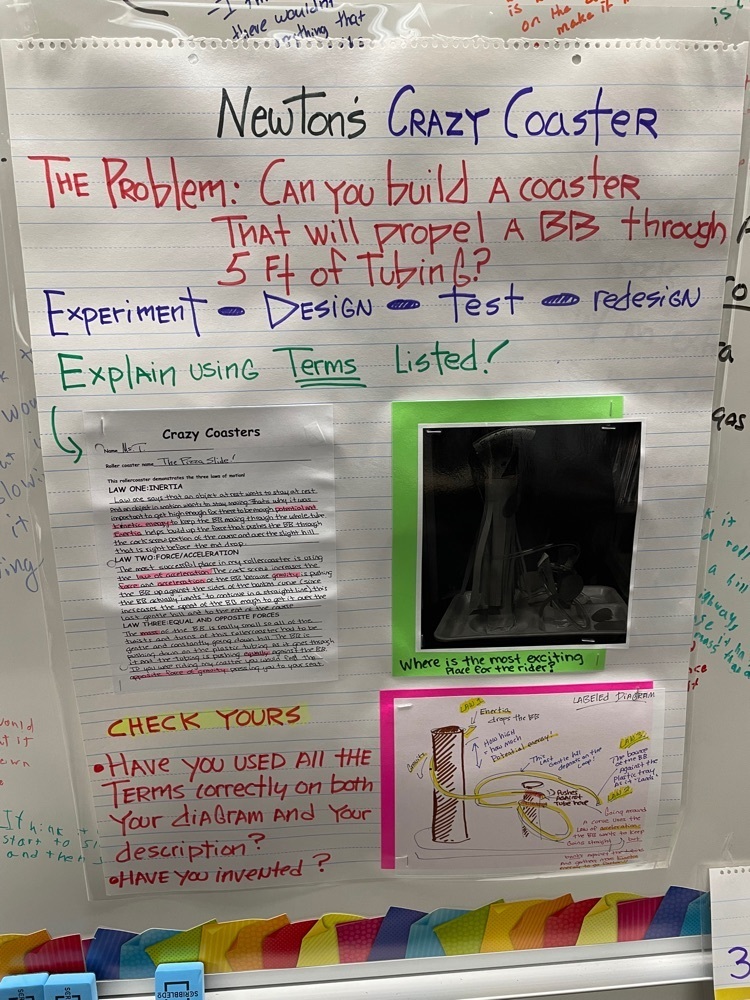 there wouldn't
anything that
is
on the
make it
Newton's Crazy Coaster
The Problem: Can you build a coaster
That will propel a BB through
5 Ft of Tubing?
Experiment - Design - Test - redesign
Explain using Terms Listed!
Crazy Coasters
Name Ms T.
Roller coaster name The Pizza Slide!
This rollercoaster demonstrates the three laws of motion!
LAW ONE:INERTIA
Law one says that an object at rest wants to stay at rest
and an object in motion wants to stay moving. That's why it was
important to get high enough for there to be enough potential and
kinetic energy to keep the BB moving through the whole tube.
Inertia helps build up the force that pushes the BB through
the cork screw portion of the course and over the slight hill
that is right before the end drop.
LAW TWO:FORCE/ACCELERATION
The most successful place in my rollercoaster is using
the law of acceleration. The cork screw increases the
force and acceleration of the BB because gravity is pushing
the BB up against the sides of the bottom curve (since
the BB actually wants to continue in a straight line) this
increases the speed of the BB enough to get it over the
last gentle hill and to the end of the course
LAW THREE:EQUAL AND OPPOSITE FORCES
The mass of the BB is really small so all of the
twists and turns of this rollercoaster had to be
gentle and constantly going down hill. The BB is
pushing down on the plastic tubing as it goes through
it and the tubing is pushing equally against the BB.
If you were riding my coaster you would feel the
opposite force of gravity pressing you to your seat.
Where is the most exciting
Place for the rider?
LABELED DIAGRAM
LAW 1:
Enertia
drops the BB
How high
= how much
Potential energy!
Gravity
This gentle hill
depends on the
Loop!
Pushes
Against
Tube here
LAW 3:
The bounce
of the BB
Against the
Plastic tray
As it "Lands"
LAW 2:
Going around
A curve uses the
Law of acceleration
the BB wants to keep
Going straight
but
CHECK YOURS
• Have you used all the
Terms correctly on both
Your diagram and Your
description?
• Have you invented?
SCRIBBLEDO
3